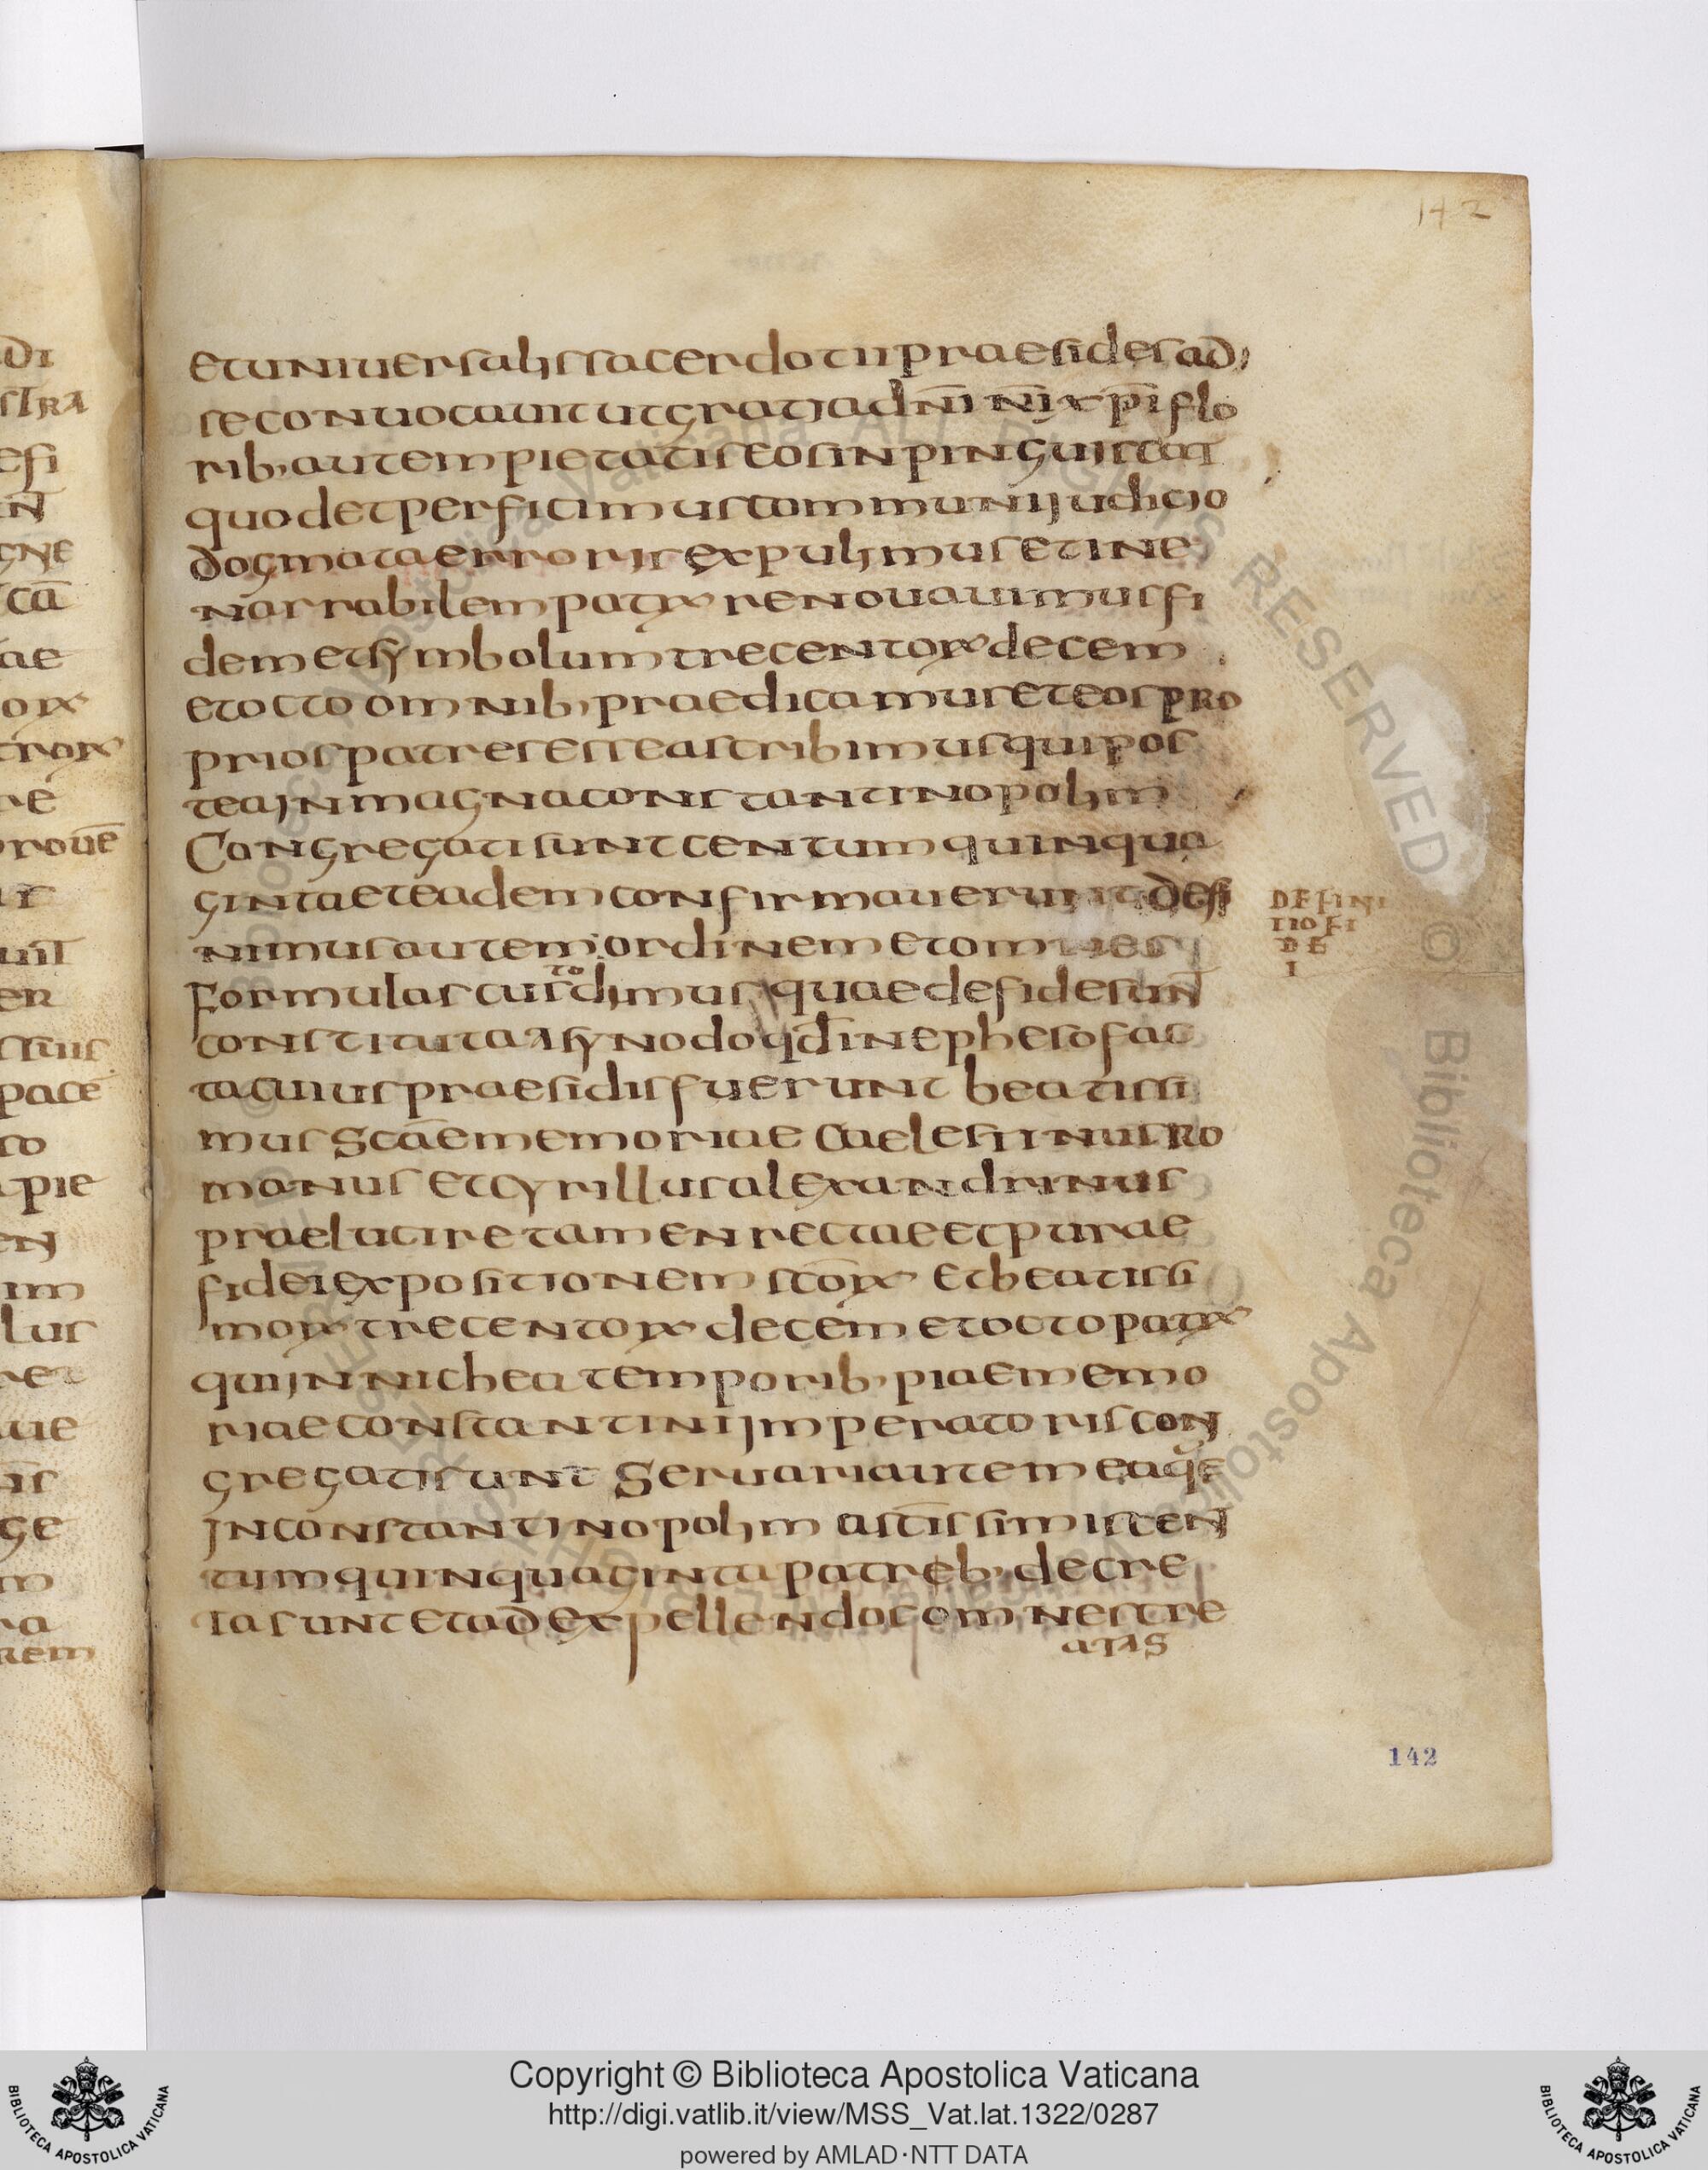 142
et universalis sacerdotii praesides ad
se convocavit ut gratia dn̄i n̄i xp̄i flo
rib· autem pietatis eos inpinguistat
quod et perficimus communi judicio
dogmata erroris expulimus et ine
narrabilem patrꝝ renovavimus fi
dem et symbolum trecentoꝝ decem
et octo omnib· praedicamus et eos pro
prios patres esse astribimus qui pos
tea in magna constantinopolim
Congregati sunt centum quinqua
ginta et eadem confirmaverunt defi
nimus autem ordinem et omnes
formulas custodimus quae de fide sun̄t
constituta a synodo qd̄ in epheso fac
ta cuius praesidis fuerunt beatissi
mus Scāe memoriae Caelestinus Ro
manus et cyrillus alexandrinus
praelucire tamen rectae et purae
fidei expositionem sc̄oꝝ Et beatissi
moꝝ trecentoꝝ decem et octo patrꝝ
qui in nichea temporib· piae memo
riae constantini imperatoris con
gregati sunt Servari autem ea q̄
in constantinopolim a sc̄issimis cen
tum quinquaginta patreb· decre
ta sunt et ad expellendos omnes tre
atas
DEFINI
TIO FI
DE
I
142
Copyright © Biblioteca Apostolica Vaticana
http://digi.vatlib.it/view/MSS_Vat.lat.1322/0287
powered by AMLAD·NTT DATA
BIBLIOTECA APOSTOLICA VATICANA
BIBLIOTECA APOSTOLICA VATICANA